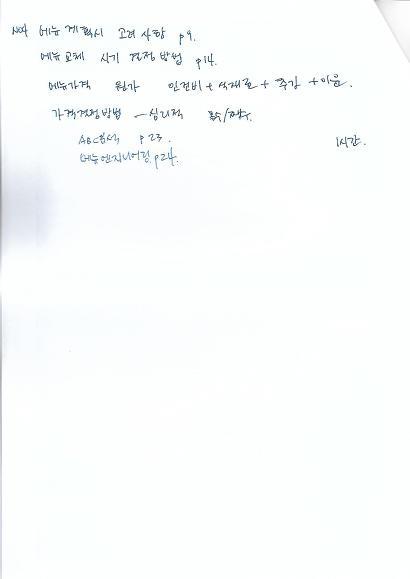 No4 메뉴 계획시 고려 사항 p9.
메뉴 교체 시기 결정 방법 p14.
메뉴가격 원가 인건비 + 식재료 + 주김 + 이윤.
가격결정방법 - 심리적 홀수/짝수
ABC분석 p23. 1시간.
메뉴엔지니어링 p24.